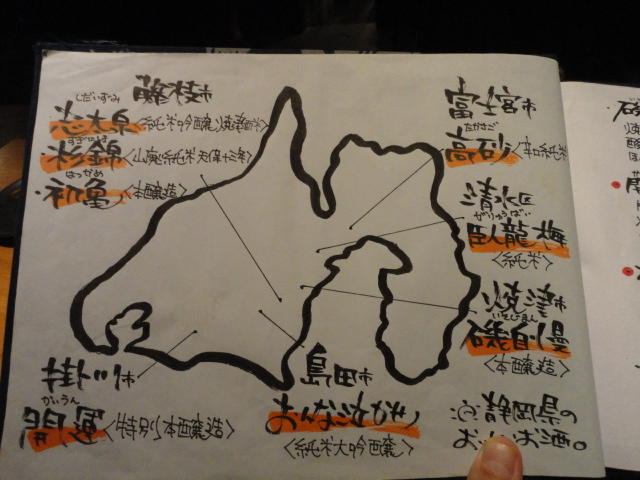 藤枝市
しだいずみ
志太泉〈純米吟醸 焼津酒米〉
すぎにしき
杉錦〈山廃純米
はつかめ
初亀〈本醸造〉
富士宮市
たかさご
高砂
清水区
がりゅうばい
臥龍梅
〈純米〉
焼津市
いそじまん
磯自慢
〈本醸造〉
掛川市
かいうん
開運〈特別本醸造〉
島田市
おんな泣かせ
〈純米大吟醸〉
静岡県の
お酒。